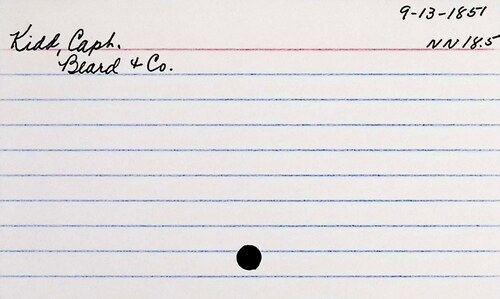 9-13-1851
Kidd, Caph. NN 18.5
Beard & Co.